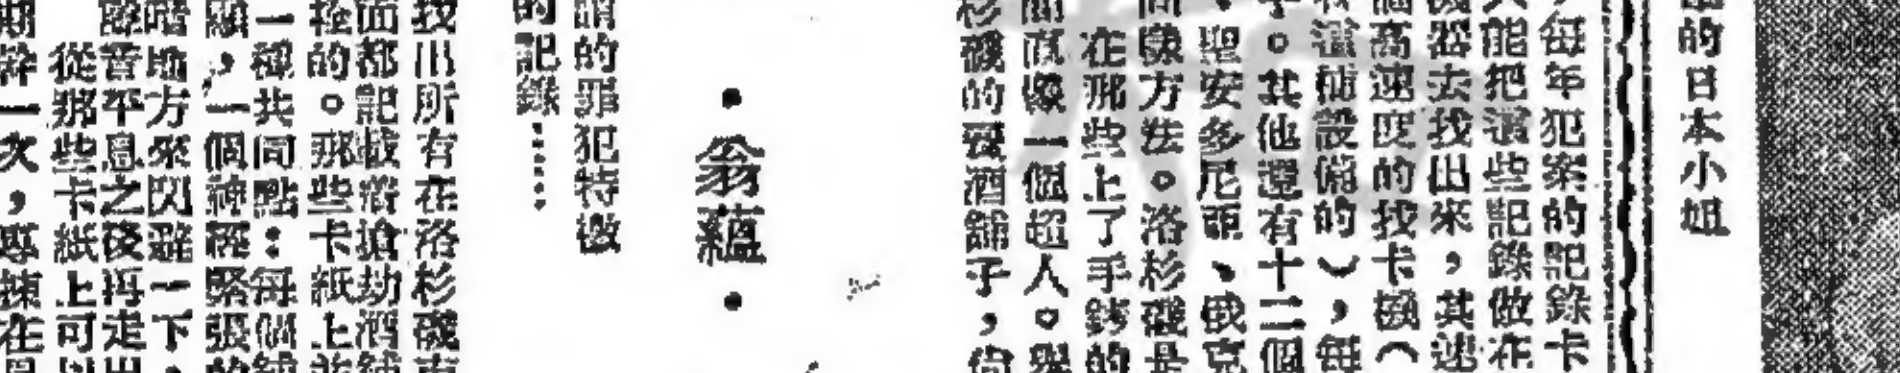 的日本小姐
每年犯案的記錄卡
能把這些記錄做在
機器去找出來，其速
高速度的找卡機（
設備的），每
。其他還有十二個
、聖安多尼亞、俄克
同樣方法。洛杉磯是
在那些上了手銬的
簡直像一個超人。與
杉磯的賣酒舖子，
•翁蘊•
的罪犯特徵
的記錄……
找出所有在洛杉磯市
面都記載着搶劫酒舖
的。那些卡紙上並
一種共同點：每個
顯，一個神經緊張的
暗地方來閃避一下，
聲音平息之後再走出
從那些卡紙上可以
幹一次，專揀在